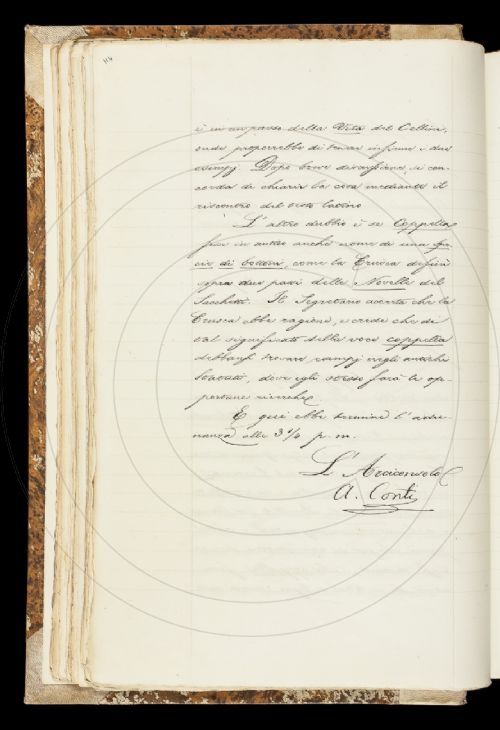 114
è in un passo della Vita del Cellini,
onde proporrebbe di tenere insieme i due
esempj. Dopo breve discussione, si con-
corda di chiarir la cosa mediante il
riscontro del testo latino.
L'altro dubbio è se Coppella
fosse in antico anche nome di una spe-
cie di bottoni, come la Crusca definì
sopra due passi delle Novelle del
Sacchetti. Il Segretario accerta che la
Crusca ebbe ragione, e crede che di
tal significato della voce coppella
debbansi trovare esempj negli antichi
Statuti, dove egli stesso farà le op-
portune ricerche.
E qui ebbe termine l'adu-
nanza alle 3 1/4 p. m.
L'Arciconsolo
A. Conti